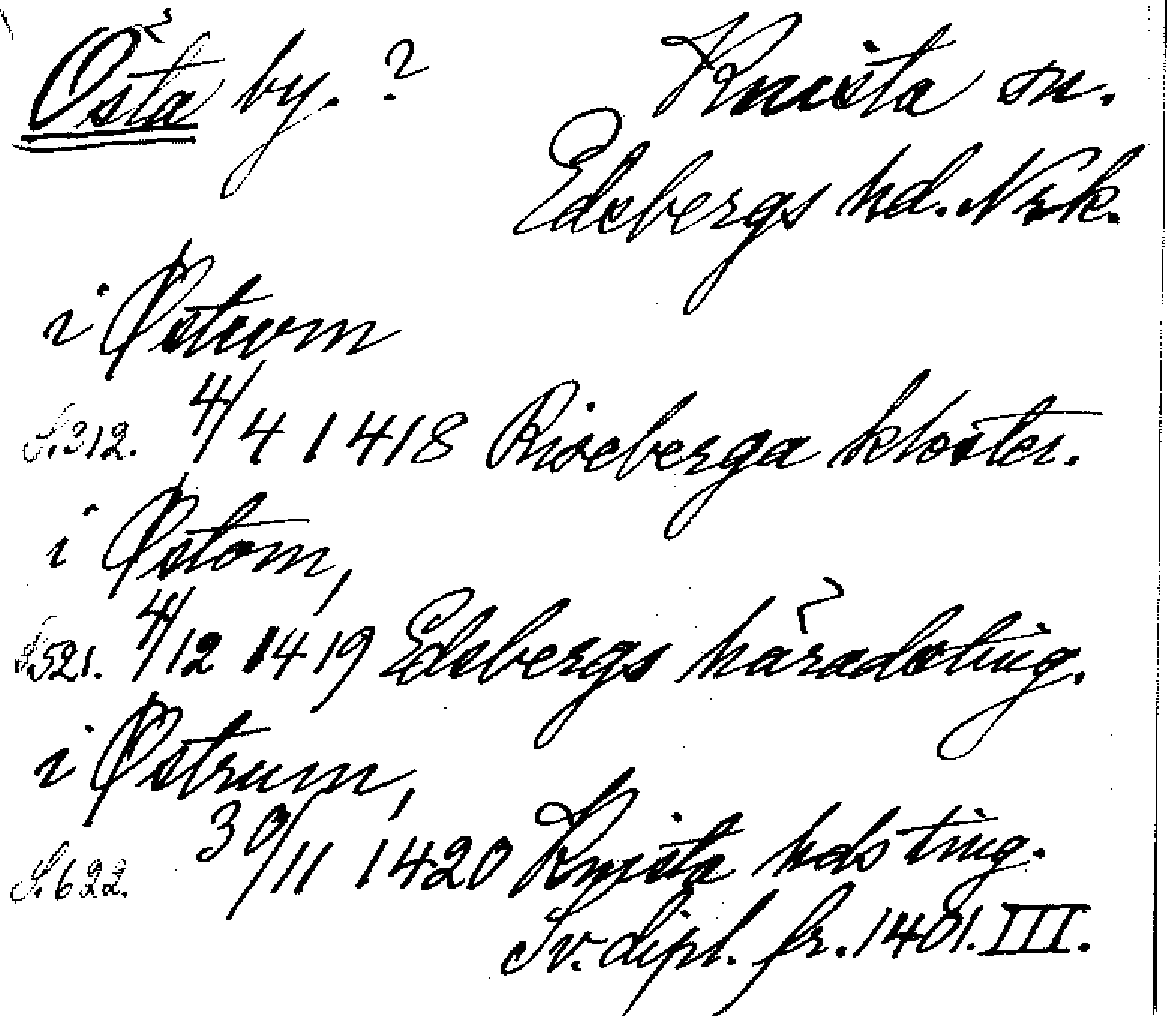 Östa by. ? Knista sn.
Edsbergs hd. Nrk.
i Østwm
S. 312. 4/4 1418 Riseberga kloster.
i Østom,
S. 521. 4/12 1419 Edsbergs häradsting.
i Østrum,
S. 622. 30/11 1420 Knista hds ting.
Sv. dipl. fr. 1401. III.